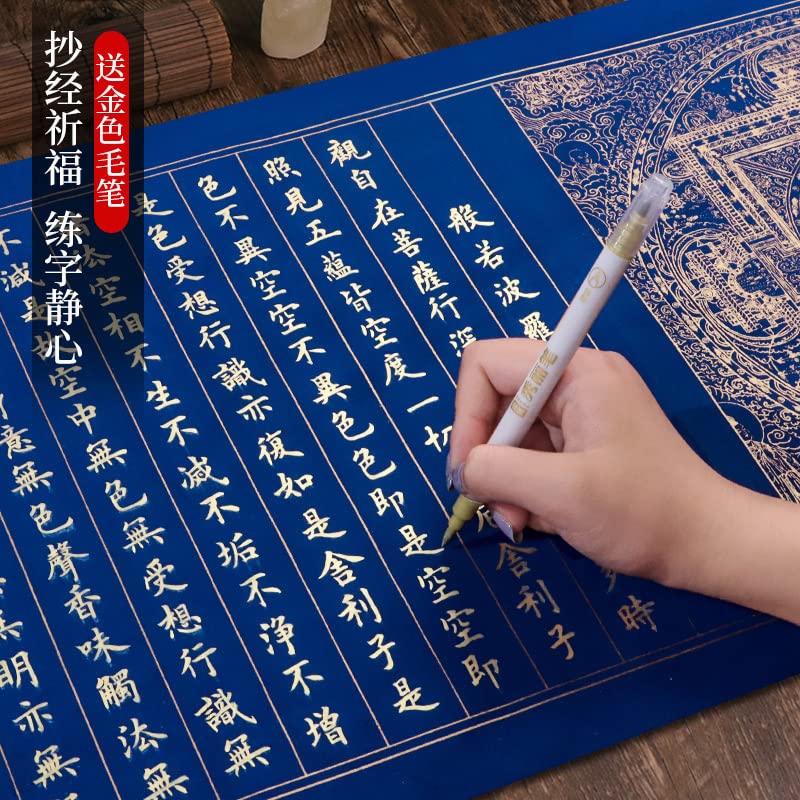 抄经祈福 练字静心
送金色毛笔
般若波羅
觀自在菩薩行深時
照見五蘊皆空度一切舍利子
色不異空空不異色色即是空空即
是色受想行識亦復如是舍利子是
法空相不生不减不垢不淨不增
不減是故空中無色無受想行識無
意無色聲香味觸法無
明亦無